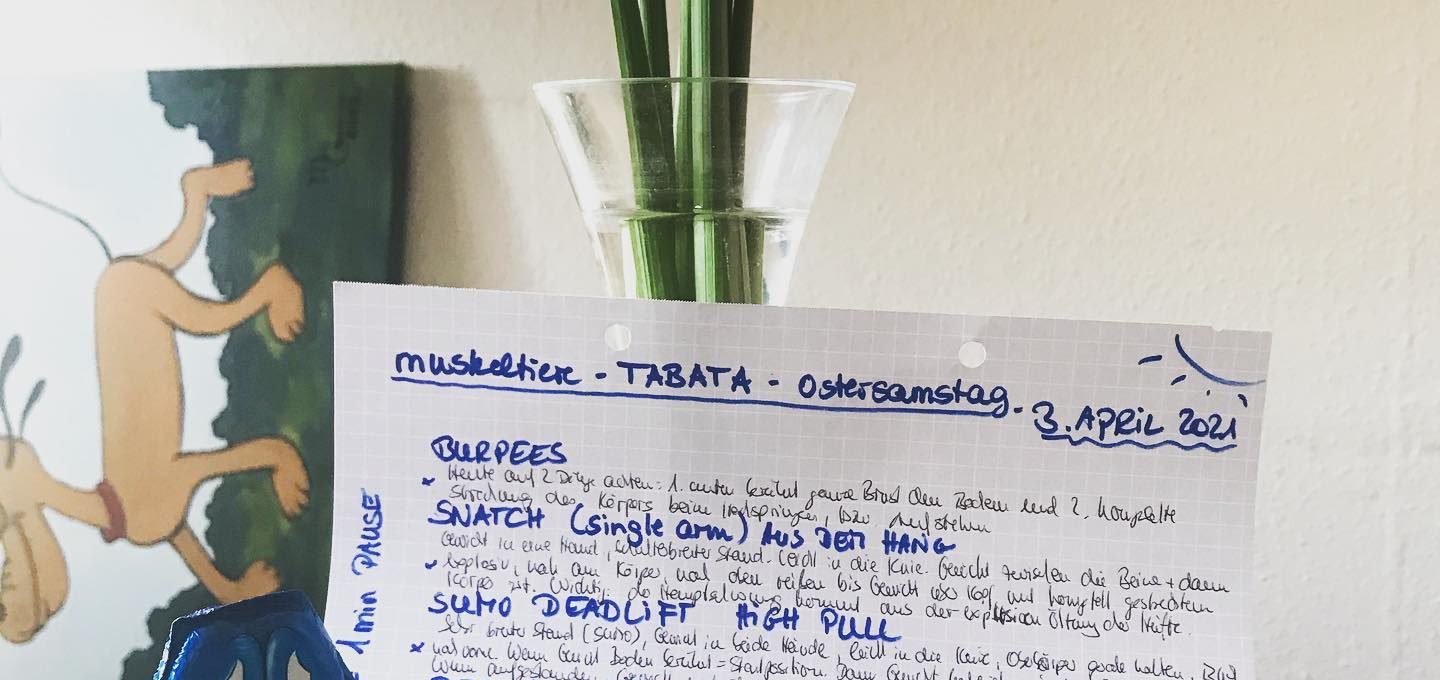 muskeltiere - TABATA - Ostersamstag.
3. APRIL 2021
BURPEES
Heute auf 2 Dinge achten: 1. unten berührt ganze Brust den Boden und 2. komplette
Streckung des Körpers beim Hochspringen, bzw. Aufstehen
SNATCH (single arm) AUS DEM HANG
Gewicht in eine Hand, schulterbreiter Stand. Leicht in die Knie. Gewicht zwischen die Beine + dann
explosiv, nah am Körper, nach oben reißen bis Gewicht über Kopf und komplett gestreckten
Körper ist. Wichtig: die kommt aus der explosiven Öffnung der Hüfte.
SUMO DEADLIFT HIGH PULL
Sehr breiter Stand (Sumo), Gewicht in beide Hände, leicht in die Knie, Oberkörper gerade halten, Blick
nach vorne. Wenn Gewicht Boden berührt = Startposition. Dann Gewicht
1 min PAUSE